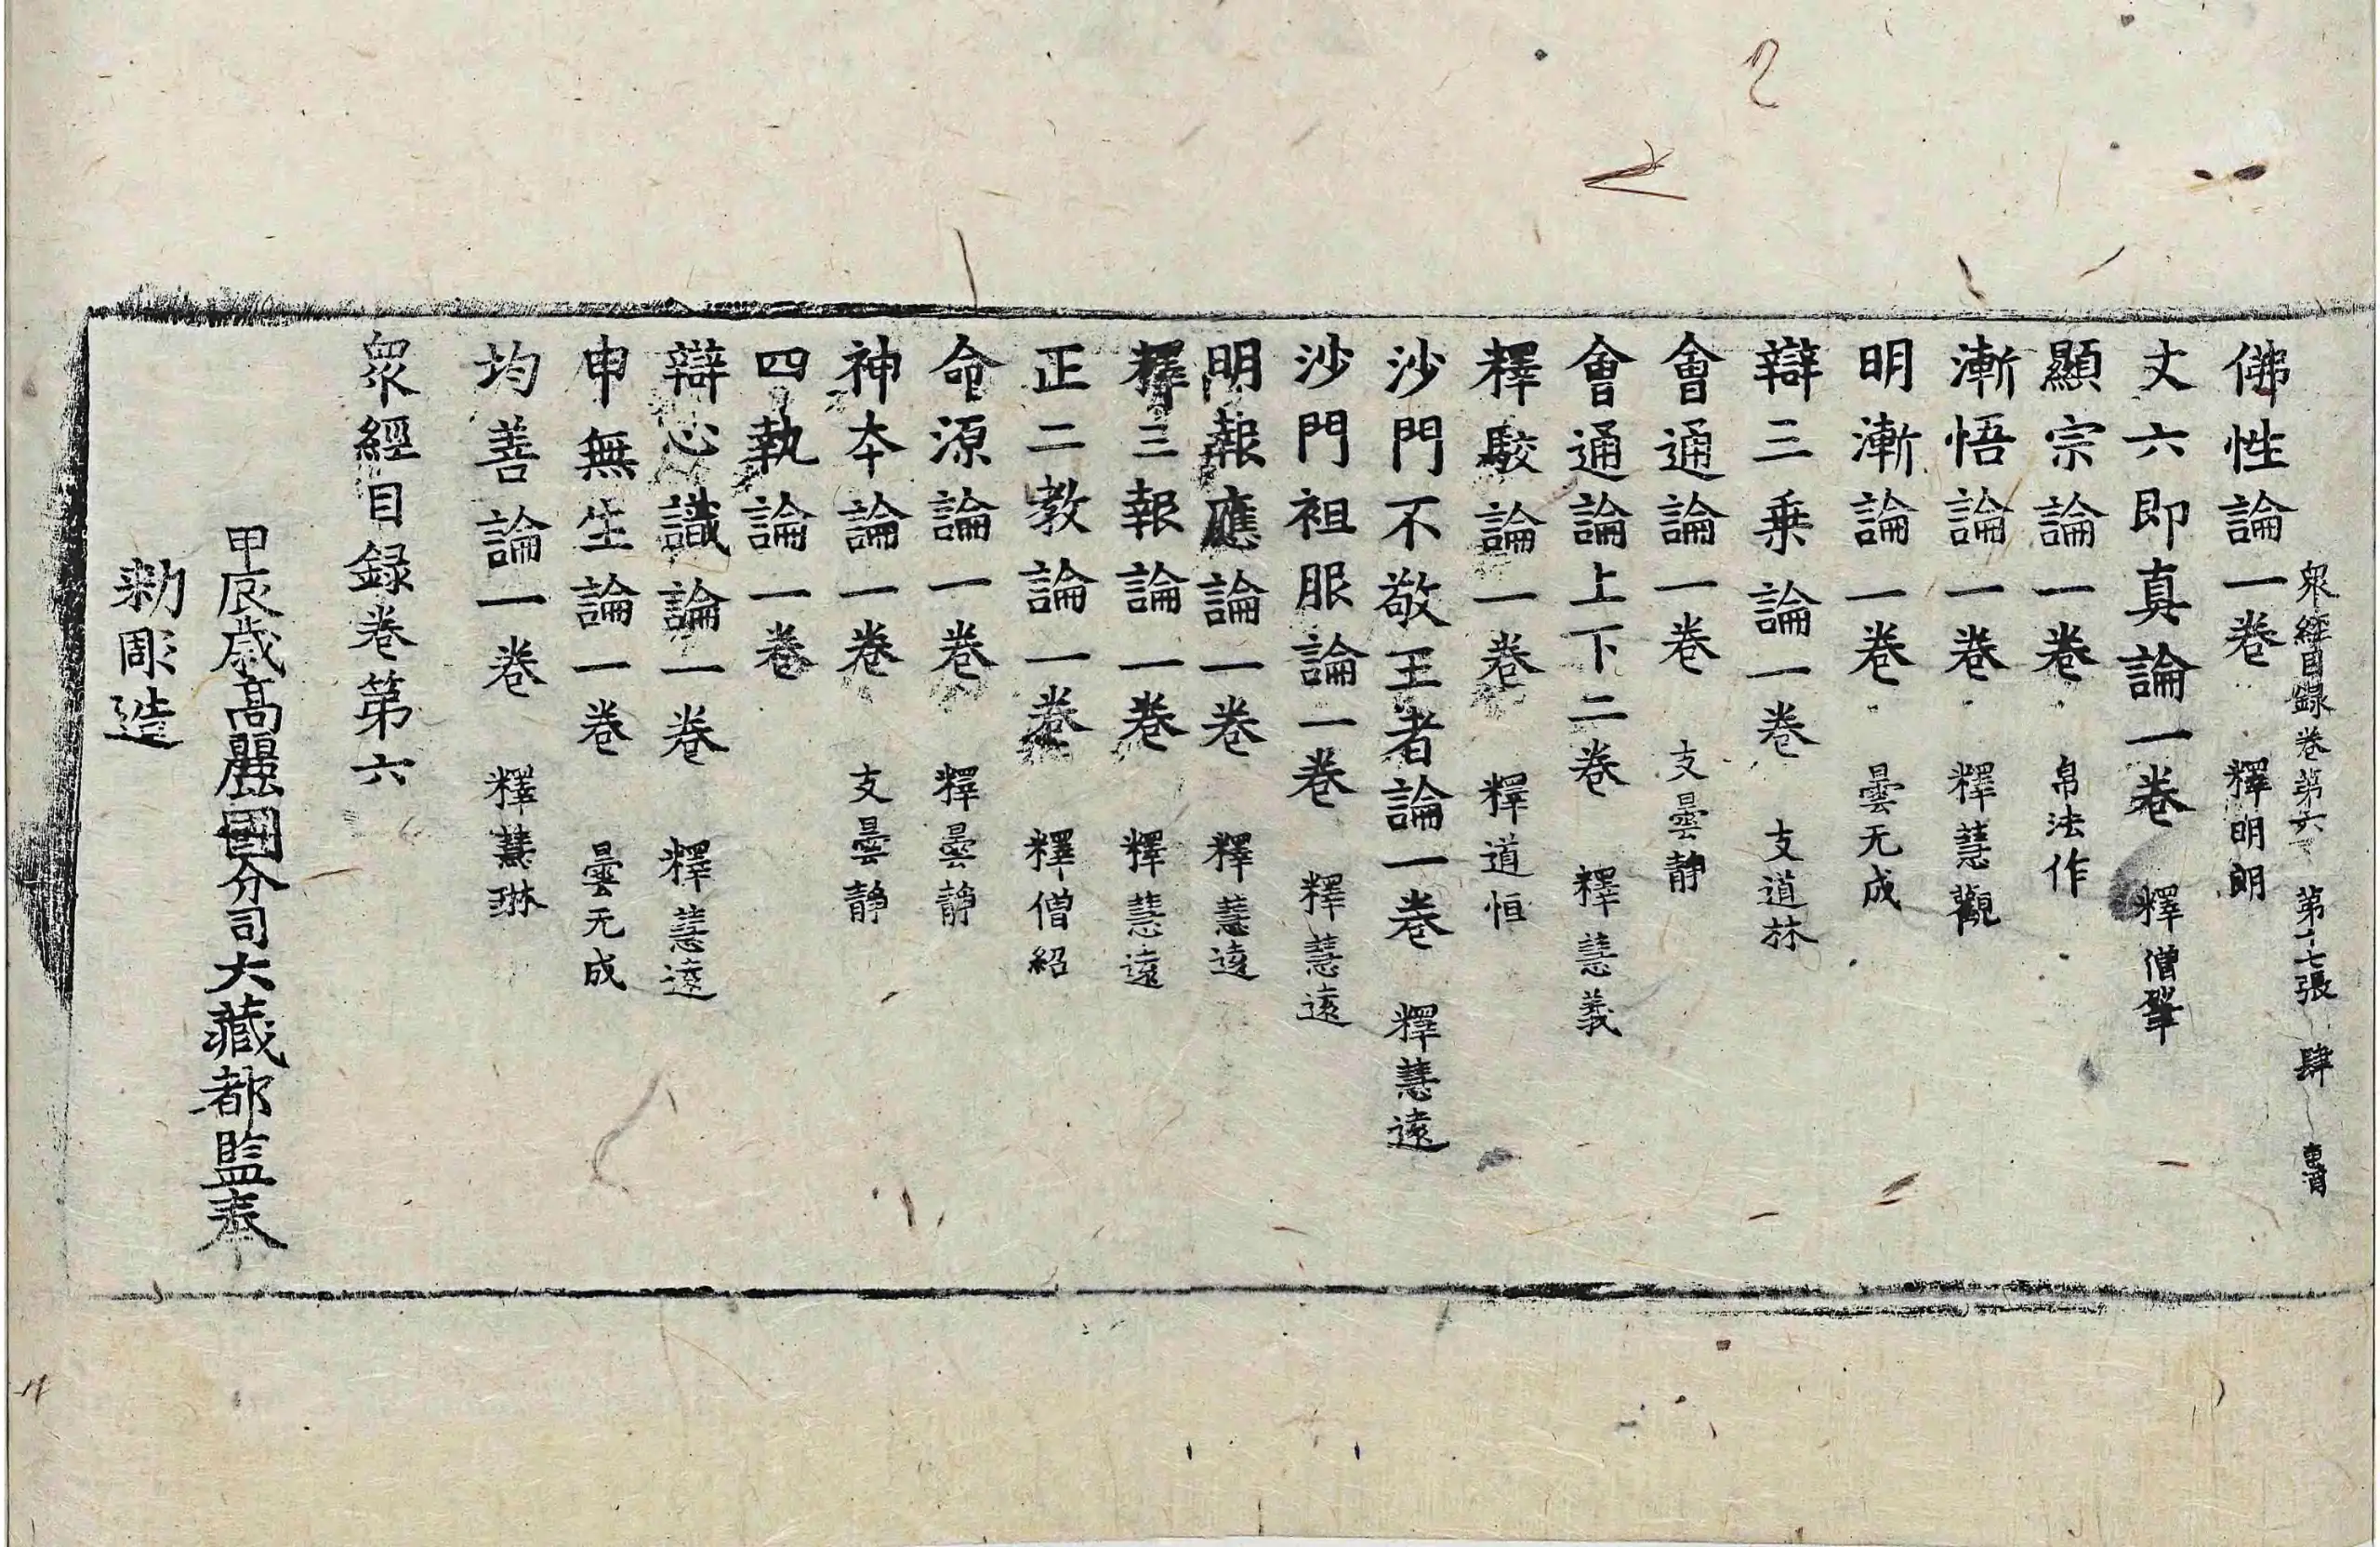 眾經目録卷第六　第十七張　肆
佛性論一卷　釋明朗
丈六即真論一卷　釋僧肇
顯宗論一卷　帛法作
漸悟論一卷　釋慧觀
明漸論一卷　曇无成
辯三乘論一卷　支道林
會通論一卷　支曇静
會通論上下二卷　釋慧義
釋駮論一卷　釋道恒
沙門不敬王者論一卷　釋慧遠
沙門袒服論一卷　釋慧遠
明報應論一卷　釋慧遠
釋三報論一卷　釋慧遠
正二教論一卷　釋僧紹
命源論一卷　釋曇静
神本論一卷　支曇静
四執論一卷
辯心識論一卷　釋慧遠
申無生論一卷　曇无成
均善論一卷　釋慧琳
眾經目録卷第六
甲辰歳高麗國分司大藏都監奉
勑彫造